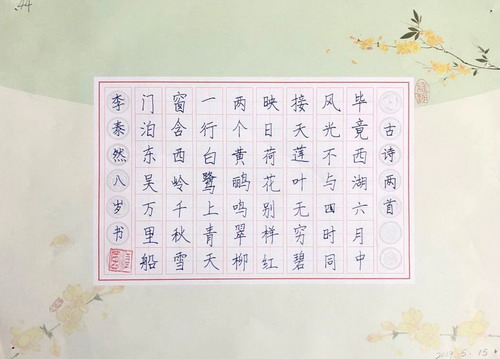 44
古诗两首
毕竟西湖六月中
风光不与四时同
接天莲叶无穷碧
映日荷花别样红
两个黄鹂鸣翠柳
一行白鹭上青天
窗含西岭千秋雪
门泊东吴万里船
李泰然八岁书
5.15